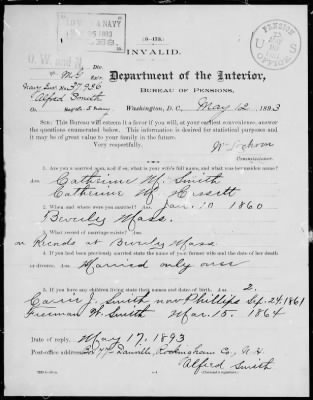 (3—173.)
INVALID.
PENSION
U S
OFFICE
Navy Inv.
Alfred Smith
Department of the Interior,
BUREAU OF PENSIONS,
Washington, D. C., May 12, 1893
SIR: This Bureau will esteem it a favor if you will, at your earliest convenience, answer
the questions enumerated below. This information is desired for statistical purposes and it
may be of great value to your family in the future.
Very respectfully,
Wm Lochren
Commissioner.
1. Are you a married man, and if so, what is your wife's full name, and what was her maiden name?
Ans. Catherine M. Smith
Catherine M.
2. When and where were you married? Ans. Jan. 10 1860
Beverley Mass.
3. What record of marriage exists? Ans.
on Records at Beverly Mass
4. If you had been previously married state the name of your former wife and the date of her death
or divorce. Ans. Married only once
5. If you have any children living state their names and dates of birth. Ans. 2.
Carrie J. Smith now Phillips Sep. 24, 1861
Freeman W. Smith Mar. 15, 1864
Date of reply. May 17, 1893
Post-office address, Box 47 Danville, Rockingham Co., N. H.
Alfred Smith